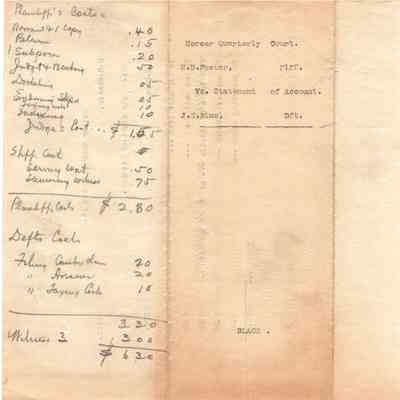 Plaintiff's Costs
.40
Return .15
1 Subpoena .20
Judgt & Recording 50
Docketing 05
05
10
Indexing 10
Judge's Cost .. $ 1.55
Shff Cost
Serving Warrant .50
Summoning witness 75
Plaintiffs Costs $ 2.80
Defts Costs
Filing Counterclaim 20
" Answer 20
" Taxing Costs 10
3 30
Witness 3 3 00
$ 6 30
Mercer Quarterly Court.
Plff.
Vs. Statement of Account.
Dft.
BLACK .